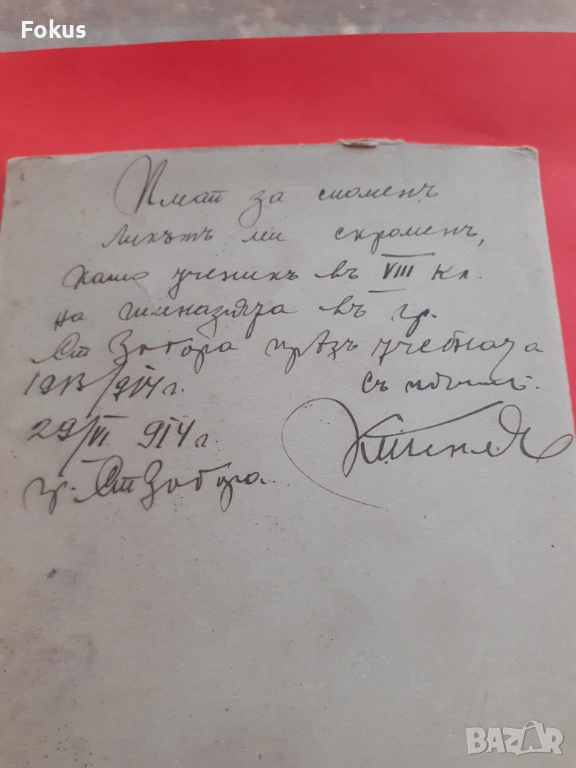 Fokus
Имай за споменъ
Ликътъ ми скроменъ,
като ученикъ въ VIII кл.
на гимназията въ гр.
Ст Загора прѣзъ учебната
1913/914 г.
съ почит.
29/VI 914 г.
гр. Ст Загора
BAZAR